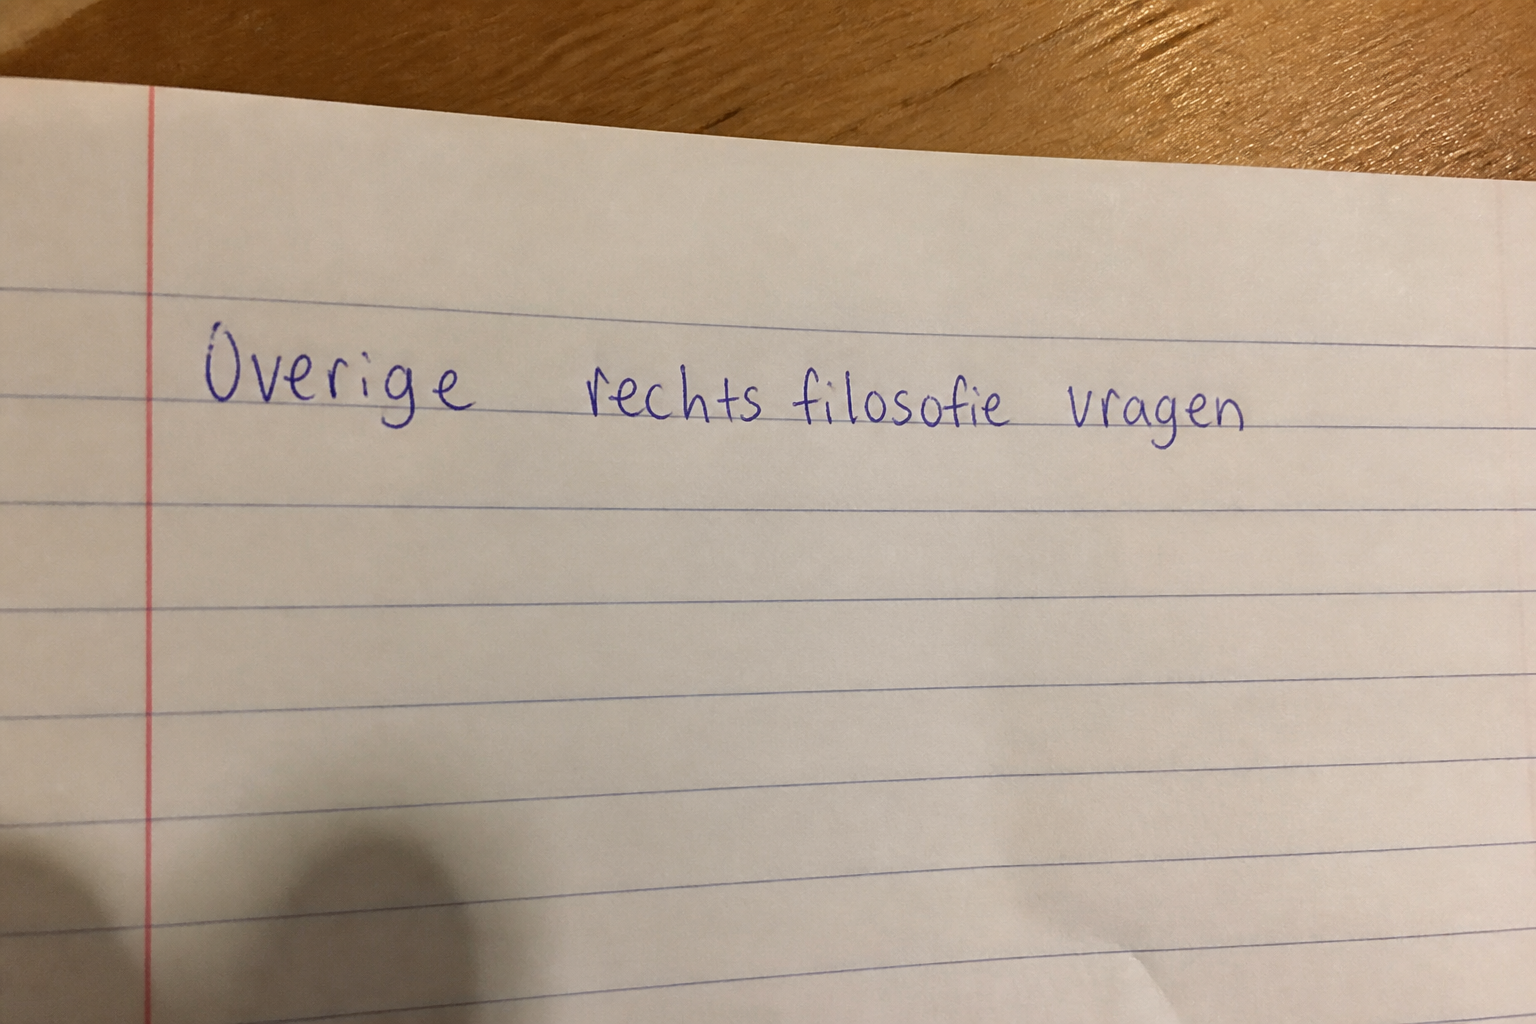 Overige rechts filosofie vragen